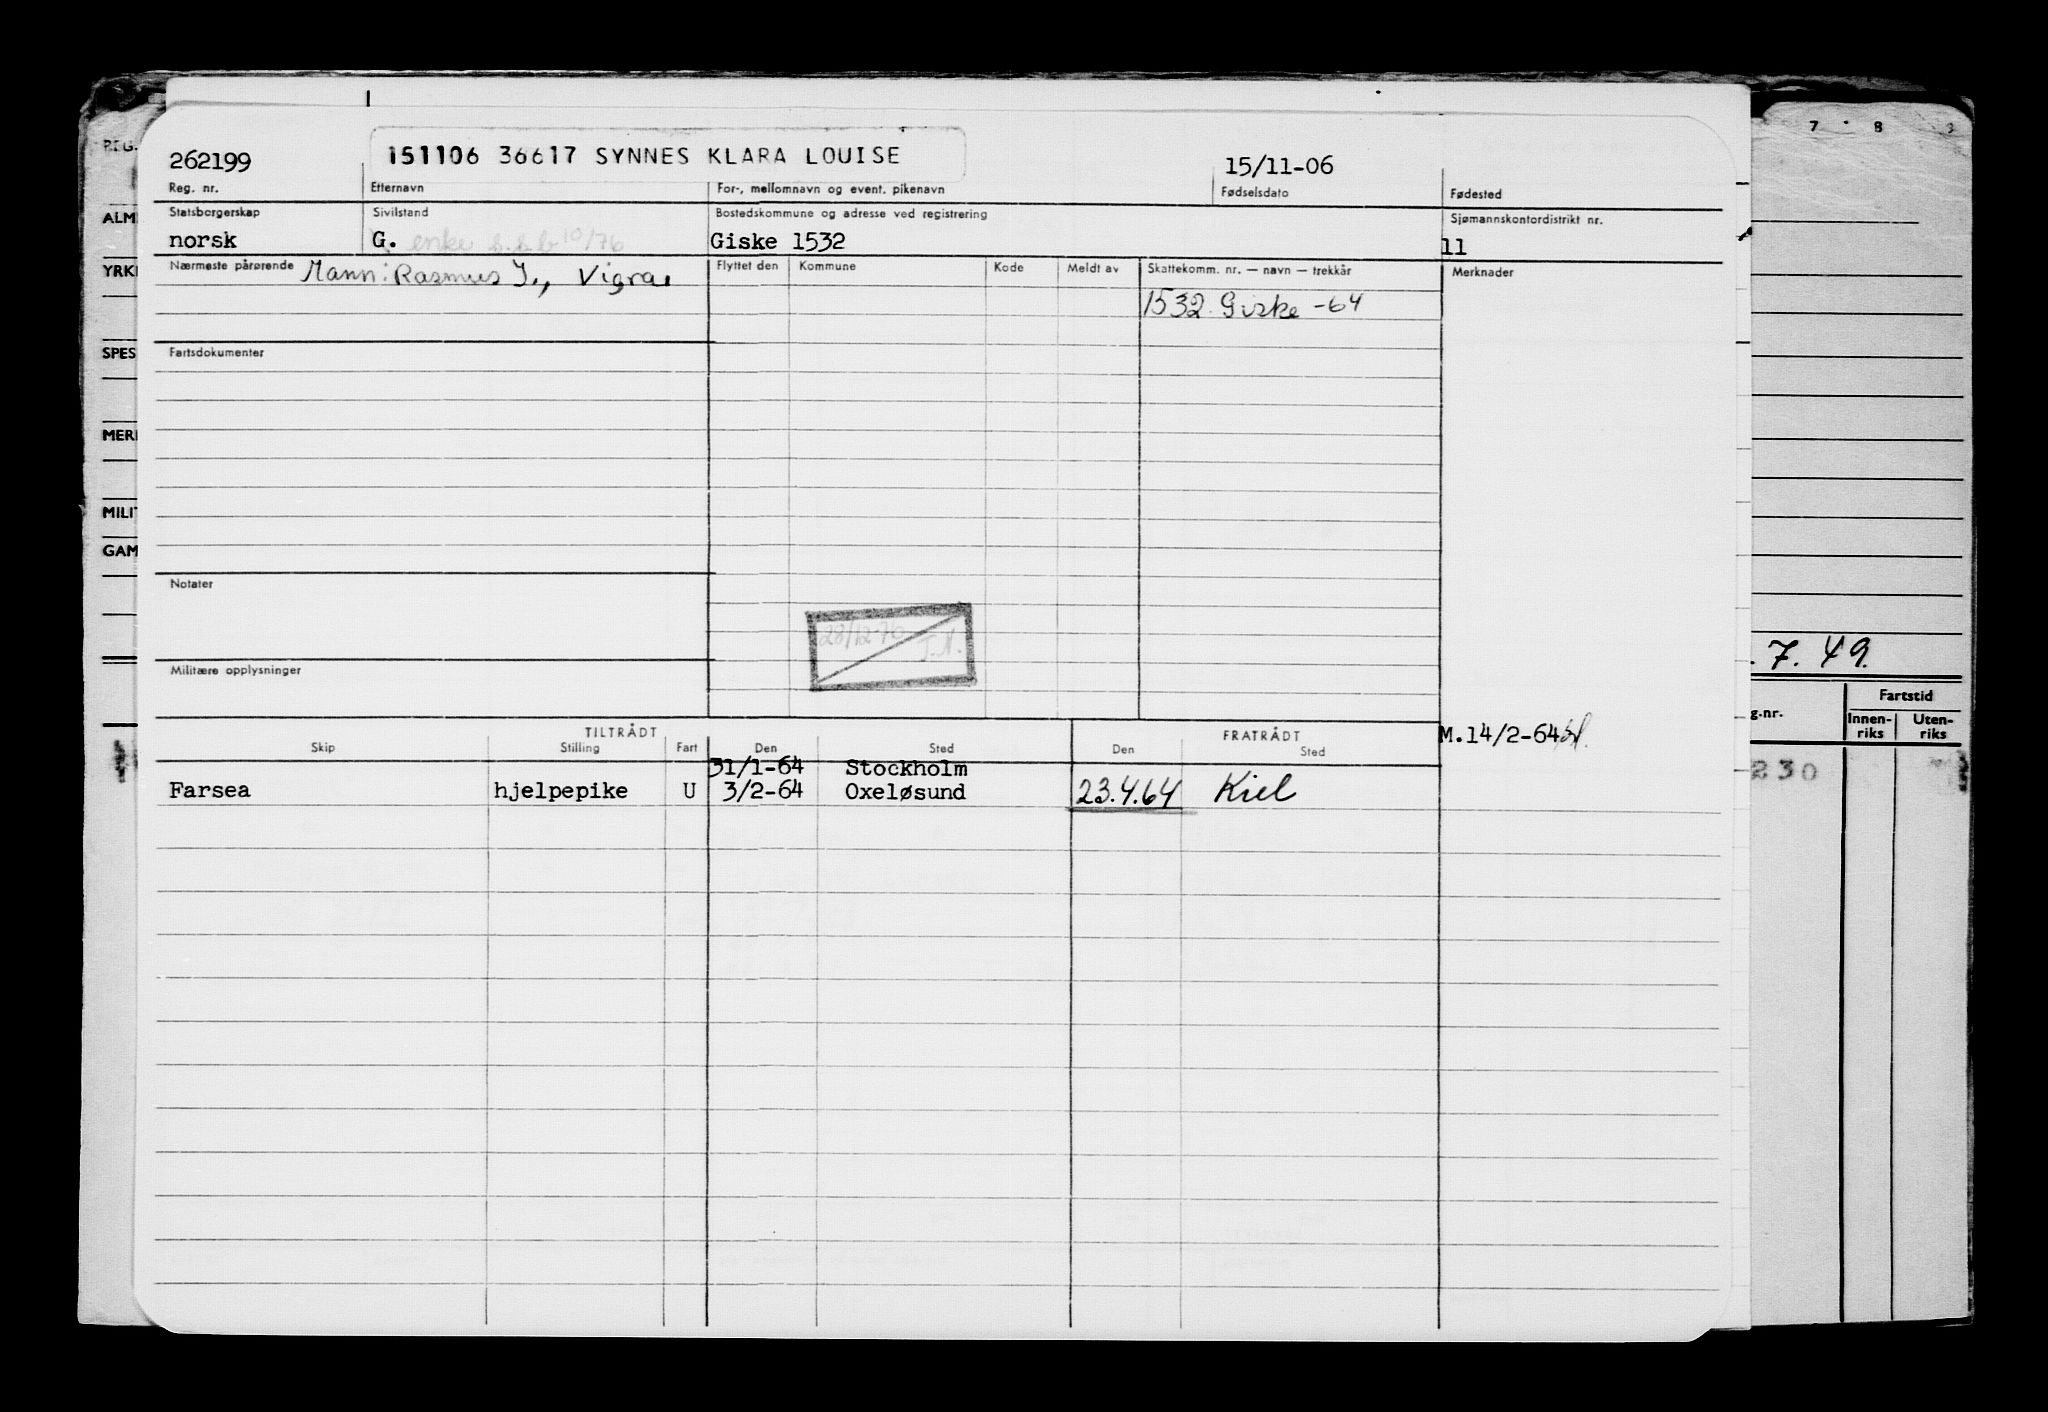 7 8 9
REG.
262199 151106 36617 SYNNES KLARA LOUISE 15/11-06
Reg. nr. Etternavn For-, mellomnavn og event. pikenavn Fødselsdato Fødested
ALM
Statsborgerskap Sivilstand Bostedskommune og adresse ved registrering Sjømannskontordistrikt nr.
norsk G. enke 10/76 Giske 1532 11
YRK
Nærmeste pårørende Mann: Rasmus J., Vigra. Flyttet den Kommune Kode Meldt av Skattekomm. nr. — navn — trekkår Merknader
1532 Giske -64
SPES
Fartsdokumenter
MER
MILI
GAM
Notater
28/12-70 T.N.
7. 49.
Militære opplysninger
Fartstid
g.nr. Innen-riks Uten-riks
TILTRÅDT FRATRÅDT M.14/2-64
Skip Stilling Fart Den Sted Den Sted
31/1-64 Stockholm
Farsea hjelpepike U 3/2-64 Oxeløsund 23.4.64 Kiel
230